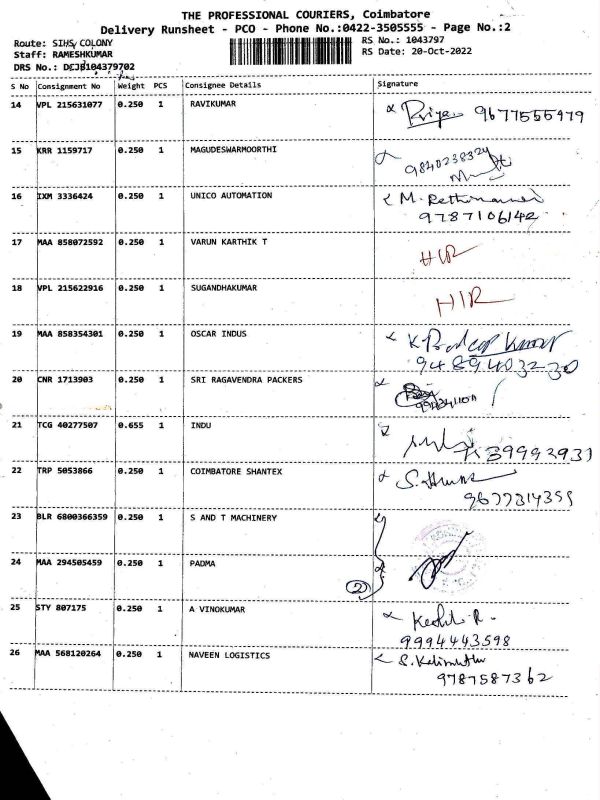 THE PROFESSIONAL COURIERS, Coimbatore
Delivery Runsheet - PCO - Phone No.:0422-3505555 - Page No.:2
Route: SIHS COLONY
RS No.: 1043797
Staff: RAMESHKUMAR
RS Date: 20-Oct-2022
DRS No.: DCJB104379702
S No Consignment No Weight PCS Consignee Details Signature
14 VPL 215631077 0.250 1 RAVIKUMAR Priya 9677555979
15 KRR 1159717 0.250 1 MAGUDESWARMOORTHI 9840238324
16 IXM 3336424 0.250 1 UNICO AUTOMATION M. 9787106142
17 MAA 858072592 0.250 1 VARUN KARTHIK T HIR
18 VPL 215622916 0.250 1 SUGANDHAKUMAR HIR
19 MAA 858354301 0.250 1 OSCAR INDUS Kumar
9489403230
20 CNR 1713903 0.250 1 SRI RAGAVENDRA PACKERS
21 TCG 40277507 0.655 1 INDU
22 TRP 5053866 0.250 1 COIMBATORE SHANTEX S.
9677314355
23 BLR 6800366359 0.250 1 S AND T MACHINERY
24 MAA 294505459 0.250 1 PADMA
2
25 STY 807175 0.250 1 A VINOKUMAR R.
9994443598
26 MAA 568120264 0.250 1 NAVEEN LOGISTICS S.
9787587362